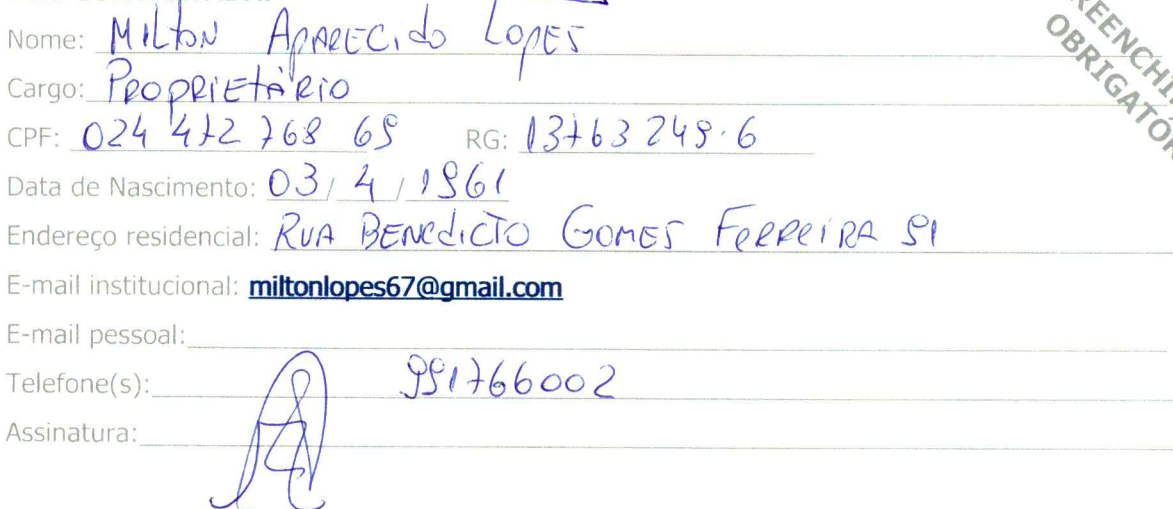 Nome: Milton Aparecido Lopes
Cargo: Proprietário
CPF: 024 472 768 69 RG: 13763 249.6
Data de Nascimento: 03/ 4 / 1961
Endereço residencial: Rua Benedicto Gomes Ferreira 91
E-mail institucional: miltonlopes67@gmail.com
E-mail pessoal:
Telefone(s): 991766002
Assinatura: